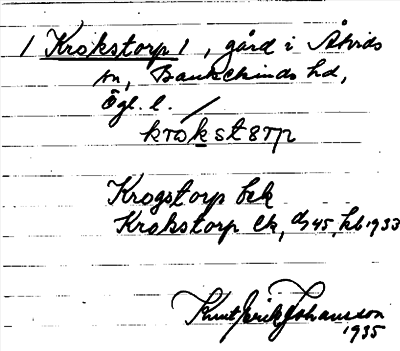 / Krokstorp / , gård i Åtvids
sn, Bankekinds hd,
Ögl. l.
krokst8rp
Krogstorp bek
Krokstorp Ek, ds 45, kb 1933
Knut Erik Johansson
1935